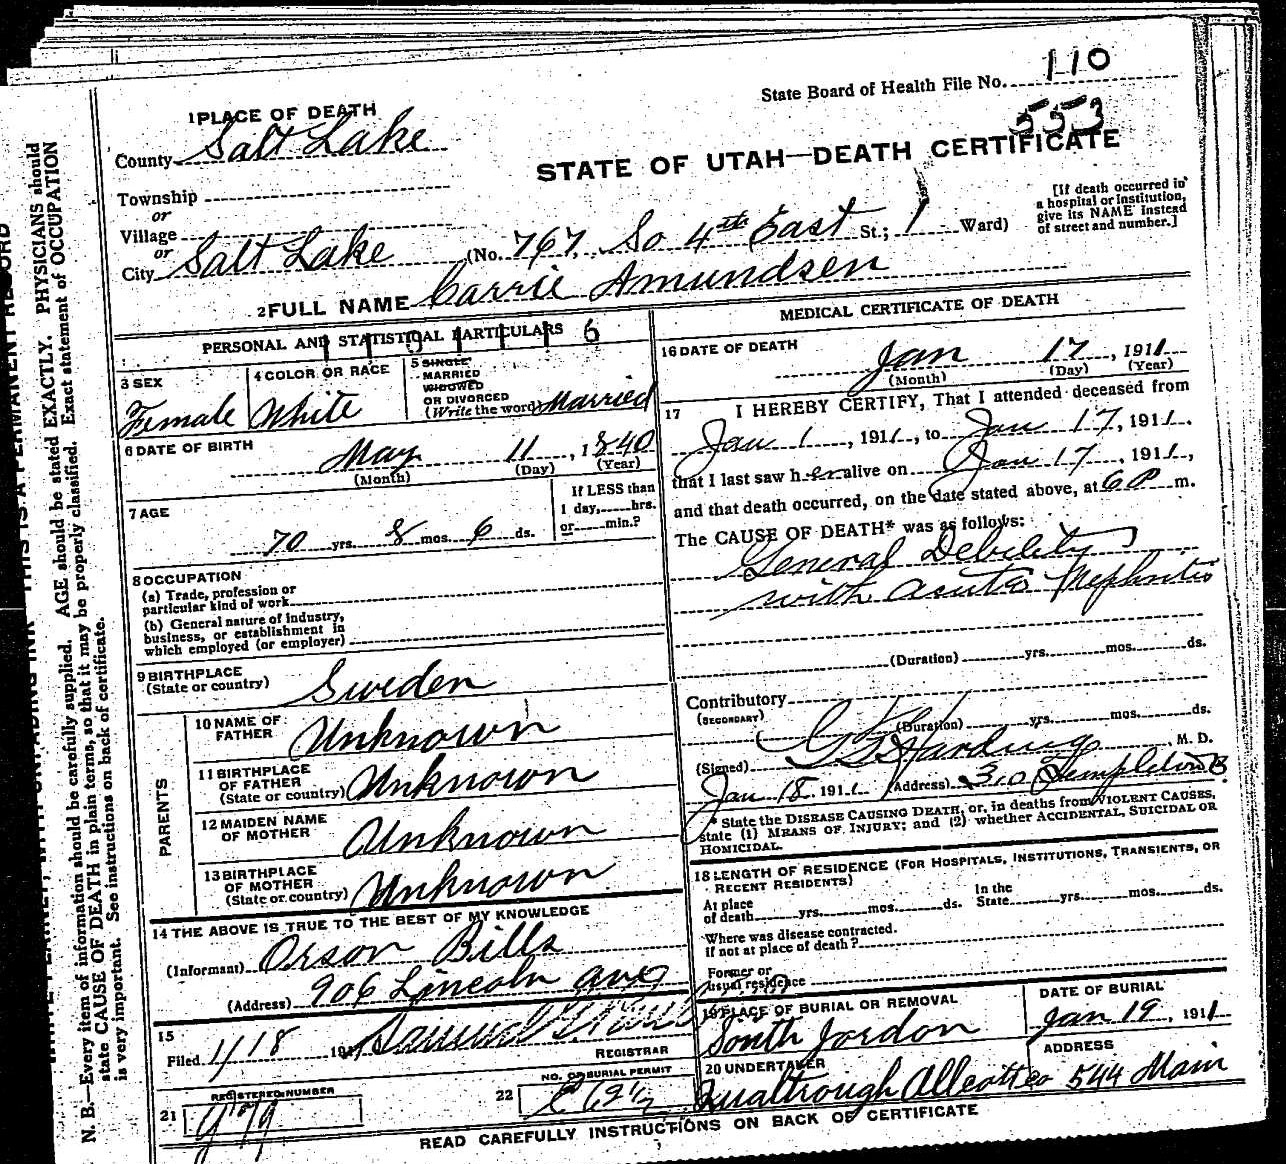 State Board of Health File No. 110
553
1 PLACE OF DEATH
County Salt Lake
STATE OF UTAH—DEATH CERTIFICATE
Township
or
Village
or
City Salt Lake (No. 767, So 4th East St.; 1 Ward)
[If death occurred in a hospital or institution, give its NAME instead of street and number.]
2 FULL NAME Carrie Amundsen
PERSONAL AND STATISTICAL PARTICULARS
3 SEX
Female
4 COLOR OR RACE
White
5 SINGLE
MARRIED
WIDOWED
OR DIVORCED
(Write the word) Married
6 DATE OF BIRTH
May 11, 1840
(Month) (Day) (Year)
7 AGE
70 yrs. 8 mos. 6 ds.
If LESS than
1 day, hrs.
or min.?
8 OCCUPATION
(a) Trade, profession or
particular kind of work
(b) General nature of industry,
business, or establishment in
which employed (or employer)
9 BIRTHPLACE
(State or country) Sweden
PARENTS
10 NAME OF
FATHER Unknown
11 BIRTHPLACE
OF FATHER
(State or country) Unknown
12 MAIDEN NAME
OF MOTHER Unknown
13 BIRTHPLACE
OF MOTHER
(State or country) Unknown
14 THE ABOVE IS TRUE TO THE BEST OF MY KNOWLEDGE
(Informant) Orson Bills
(Address) 906 Lincoln ave
15
Filed 1/18 191
REGISTRAR
REGISTERED NUMBER
21
NO. OF BURIAL PERMIT
22
MEDICAL CERTIFICATE OF DEATH
16 DATE OF DEATH
Jan 17, 1911
(Month) (Day) (Year)
17 I HEREBY CERTIFY, That I attended deceased from
Jan 1, 1911, to Jan 17, 1911.
that I last saw her alive on Jan 17, 1911,
and that death occurred, on the date stated above, at 6 P m.
The CAUSE OF DEATH* was as follows:
General Debility
with acute Nephritis
(Duration) yrs. mos. ds.
Contributory
(SECONDARY)
(Duration) yrs. mos. ds.
(Signed) Harding M. D.
Jan 18, 1911 (Address) 310 Templeton B
* State the DISEASE CAUSING DEATH, or, in deaths from VIOLENT CAUSES,
state (1) MEANS OF INJURY; and (2) whether ACCIDENTAL, SUICIDAL OR
HOMICIDAL.
18 LENGTH OF RESIDENCE (FOR HOSPITALS, INSTITUTIONS, TRANSIENTS, OR
RECENT RESIDENTS)
At place
of death yrs. mos. ds.
In the
State yrs. mos. ds.
Where was disease contracted.
if not at place of death?
Former or
usual residence
19 PLACE OF BURIAL OR REMOVAL
South Jordon
DATE OF BURIAL
Jan 19, 1911
20 UNDERTAKER
Qualtrough Allcott co
ADDRESS
544 Main
READ CAREFULLY INSTRUCTIONS ON BACK OF CERTIFICATE
N. B.—Every item of information should be carefully supplied. AGE should be stated EXACTLY. PHYSICIANS should
state CAUSE OF DEATH in plain terms, so that it may be properly classified. Exact statement of OCCUPATION
is very important. See instructions on back of certificate.